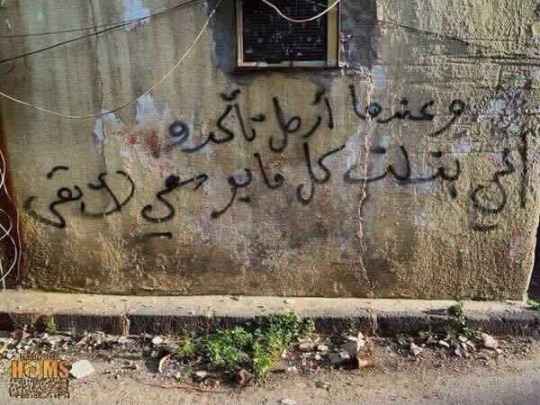 وعندما أرحل تأكدو
أنني بذلت كل مابوسعي لأبقى
HOMS